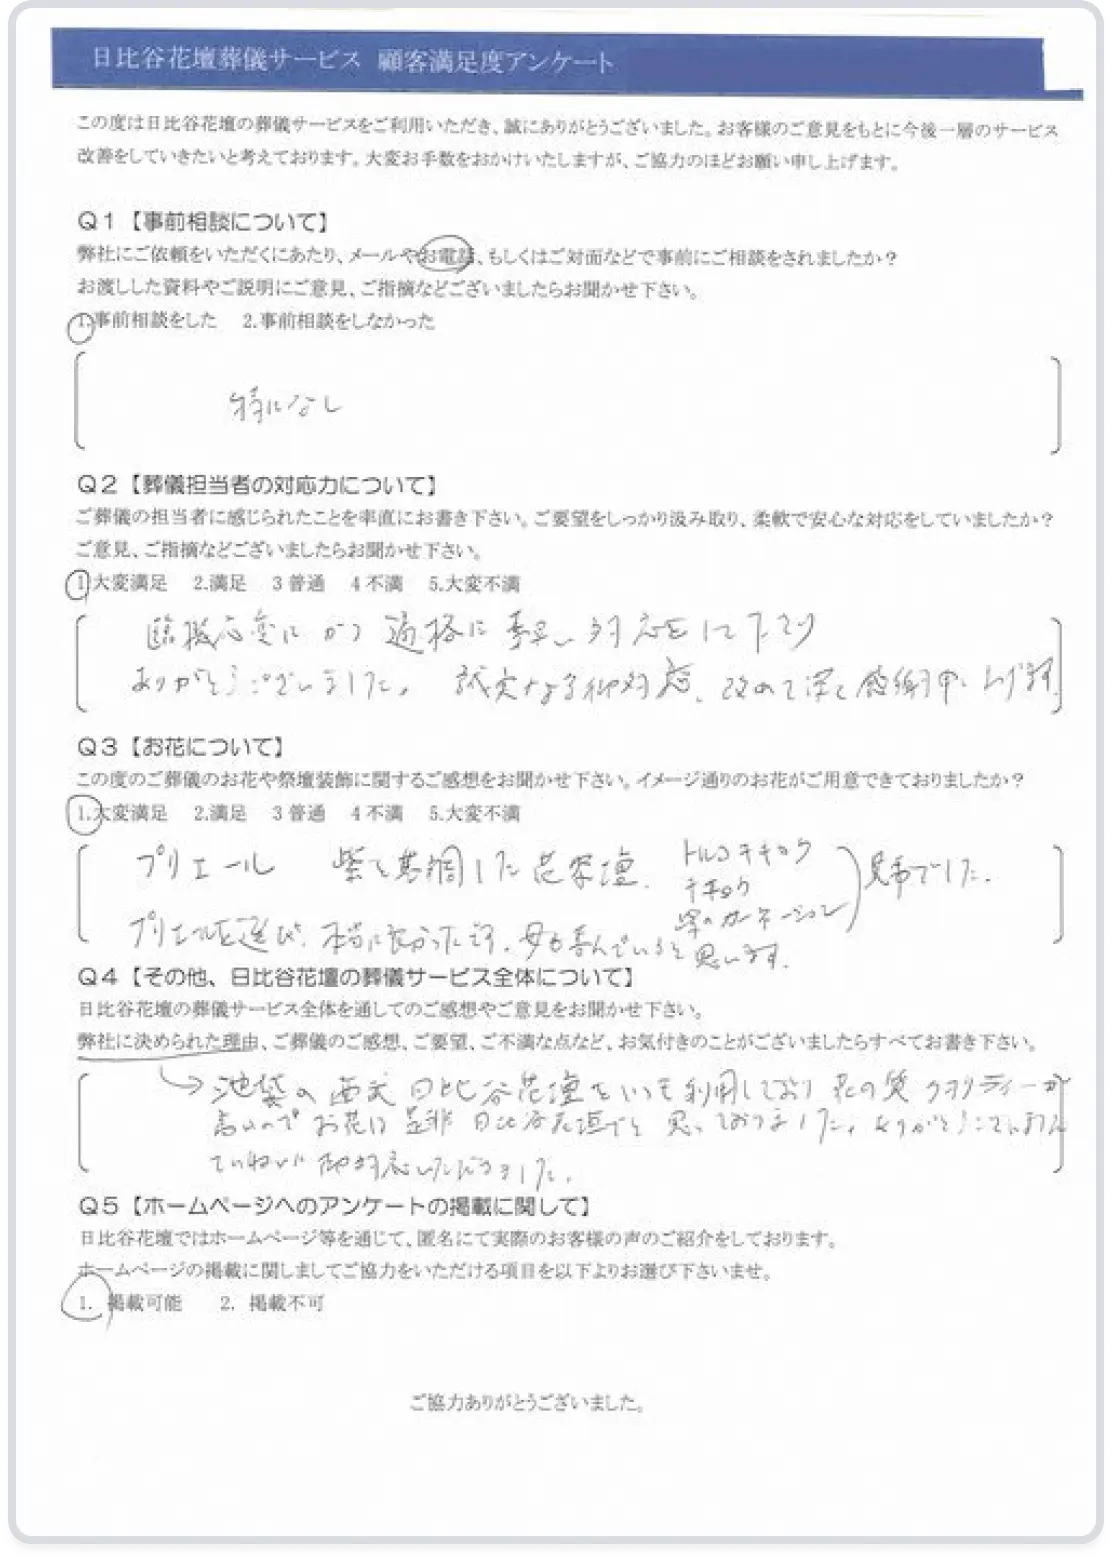 日比谷花壇葬儀サービス 顧客満足度アンケート
この度は日比谷花壇の葬儀サービスをご利用いただき、誠にありがとうございました。お客様のご意見をもとに今後一層のサービス
改善をしていきたいと考えております。大変お手数をおかけいたしますが、ご協力のほどお願い申し上げます。
Q1【事前相談について】
弊社にご依頼をいただくにあたり、メールやお電話、もしくはご対面などで事前にご相談をされましたか？
お渡しした資料やご説明にご意見、ご指摘などございましたらお聞かせ下さい。
1.事前相談をした 2.事前相談をしなかった
特になし
Q2【葬儀担当者の対応力について】
ご葬儀の担当者に感じられたことを率直にお書き下さい。ご要望をしっかり汲み取り、柔軟で安心な対応をしていましたか？
ご意見、ご指摘などございましたらお聞かせ下さい。
1.大変満足 2.満足 3 普通 4 不満 5.大変不満
臨機応変に かつ 適格に 対応をして下さり
ありがとうございました。 誠実なる御対応、改めて深く感謝申し上げます
Q3【お花について】
この度のご葬儀のお花や祭壇装飾に関するご感想をお聞かせ下さい。イメージ通りのお花がご用意できておりましたか？
1.大変満足 2.満足 3 普通 4 不満 5.大変不満
プリエール 紫を基調した花祭壇、 トルコキキョウ
キキョウ
紫のカーネーション
見事でした。
プリエールを選び、本当に良かったです。母も喜んでいると思います。
Q4【その他、日比谷花壇の葬儀サービス全体について】
日比谷花壇の葬儀サービス全体を通してのご感想やご意見をお聞かせ下さい。
弊社に決められた理由、ご葬儀のご感想、ご要望、ご不満な点など、お気付きのことがございましたらすべてお書き下さい。
→池袋の西武 日比谷花壇をいつも利用しており 花の質 クオリティーが
高いので お花は 是非 日比谷花壇でと 思っておりました。ありがとうございました
ていねいに御対応いただきました。
Q5【ホームページへのアンケートの掲載に関して】
日比谷花壇ではホームページ等を通じて、匿名にて実際のお客様の声のご紹介をしております。
ホームページの掲載に関しましてご協力をいただける項目を以下よりお選び下さいませ。
1. 掲載可能 2. 掲載不可
ご協力ありがとうございました。